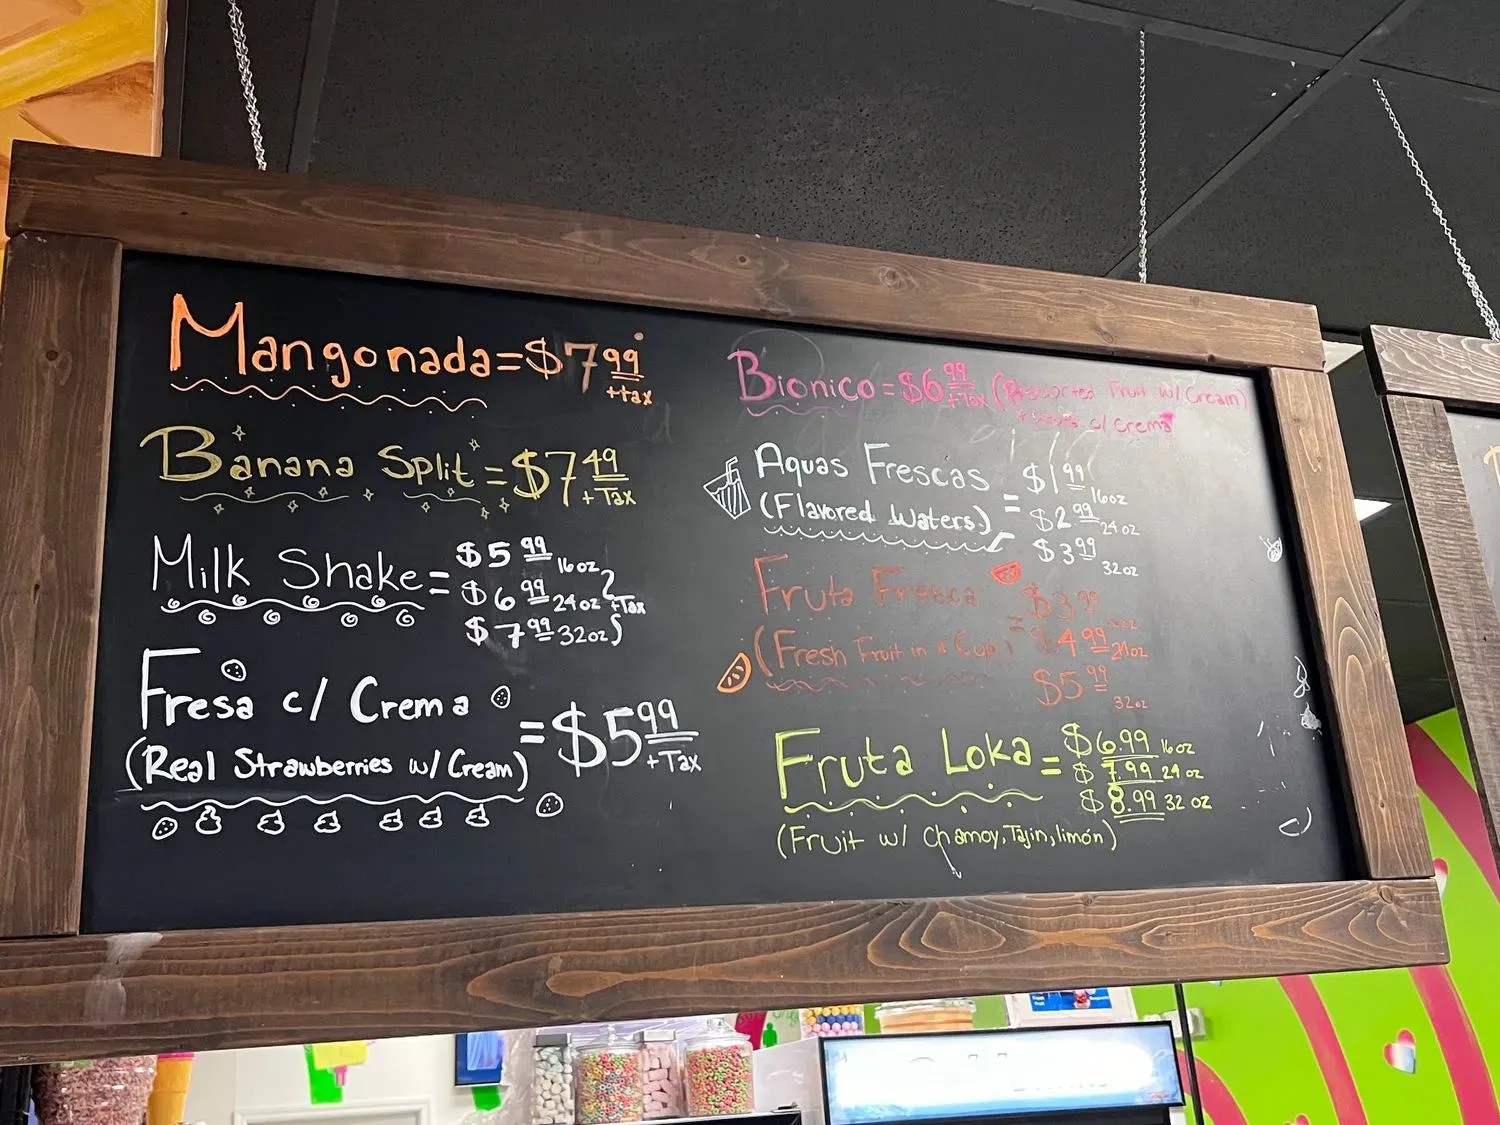 Mangonada = $7.99
+tax
Banana Split = $7.49
+ Tax
Milk Shake = $5.99 16oz
$6.99 24oz
+Tax
$7.99 32oz
Fresa c/ Crema
(Real Strawberries w/ Cream)
= $5.99
+ Tax
Bionico = $6.99 + Tax (Assorted Fruit w/ Cream)
c/ crema
Aquas Frescas
(Flavored Waters)
= $1.99 16oz
$2.99 24oz
$3.99 32oz
Fruta Fresca
(Fresh Fruit in a Cup)
= $3.99
$4.99 24oz
$5.99 32oz
Fruta Loka = $6.99 16oz
$7.99 24 oz
$8.99 32 oz
(Fruit w/ Chamoy, Tajin, limón)